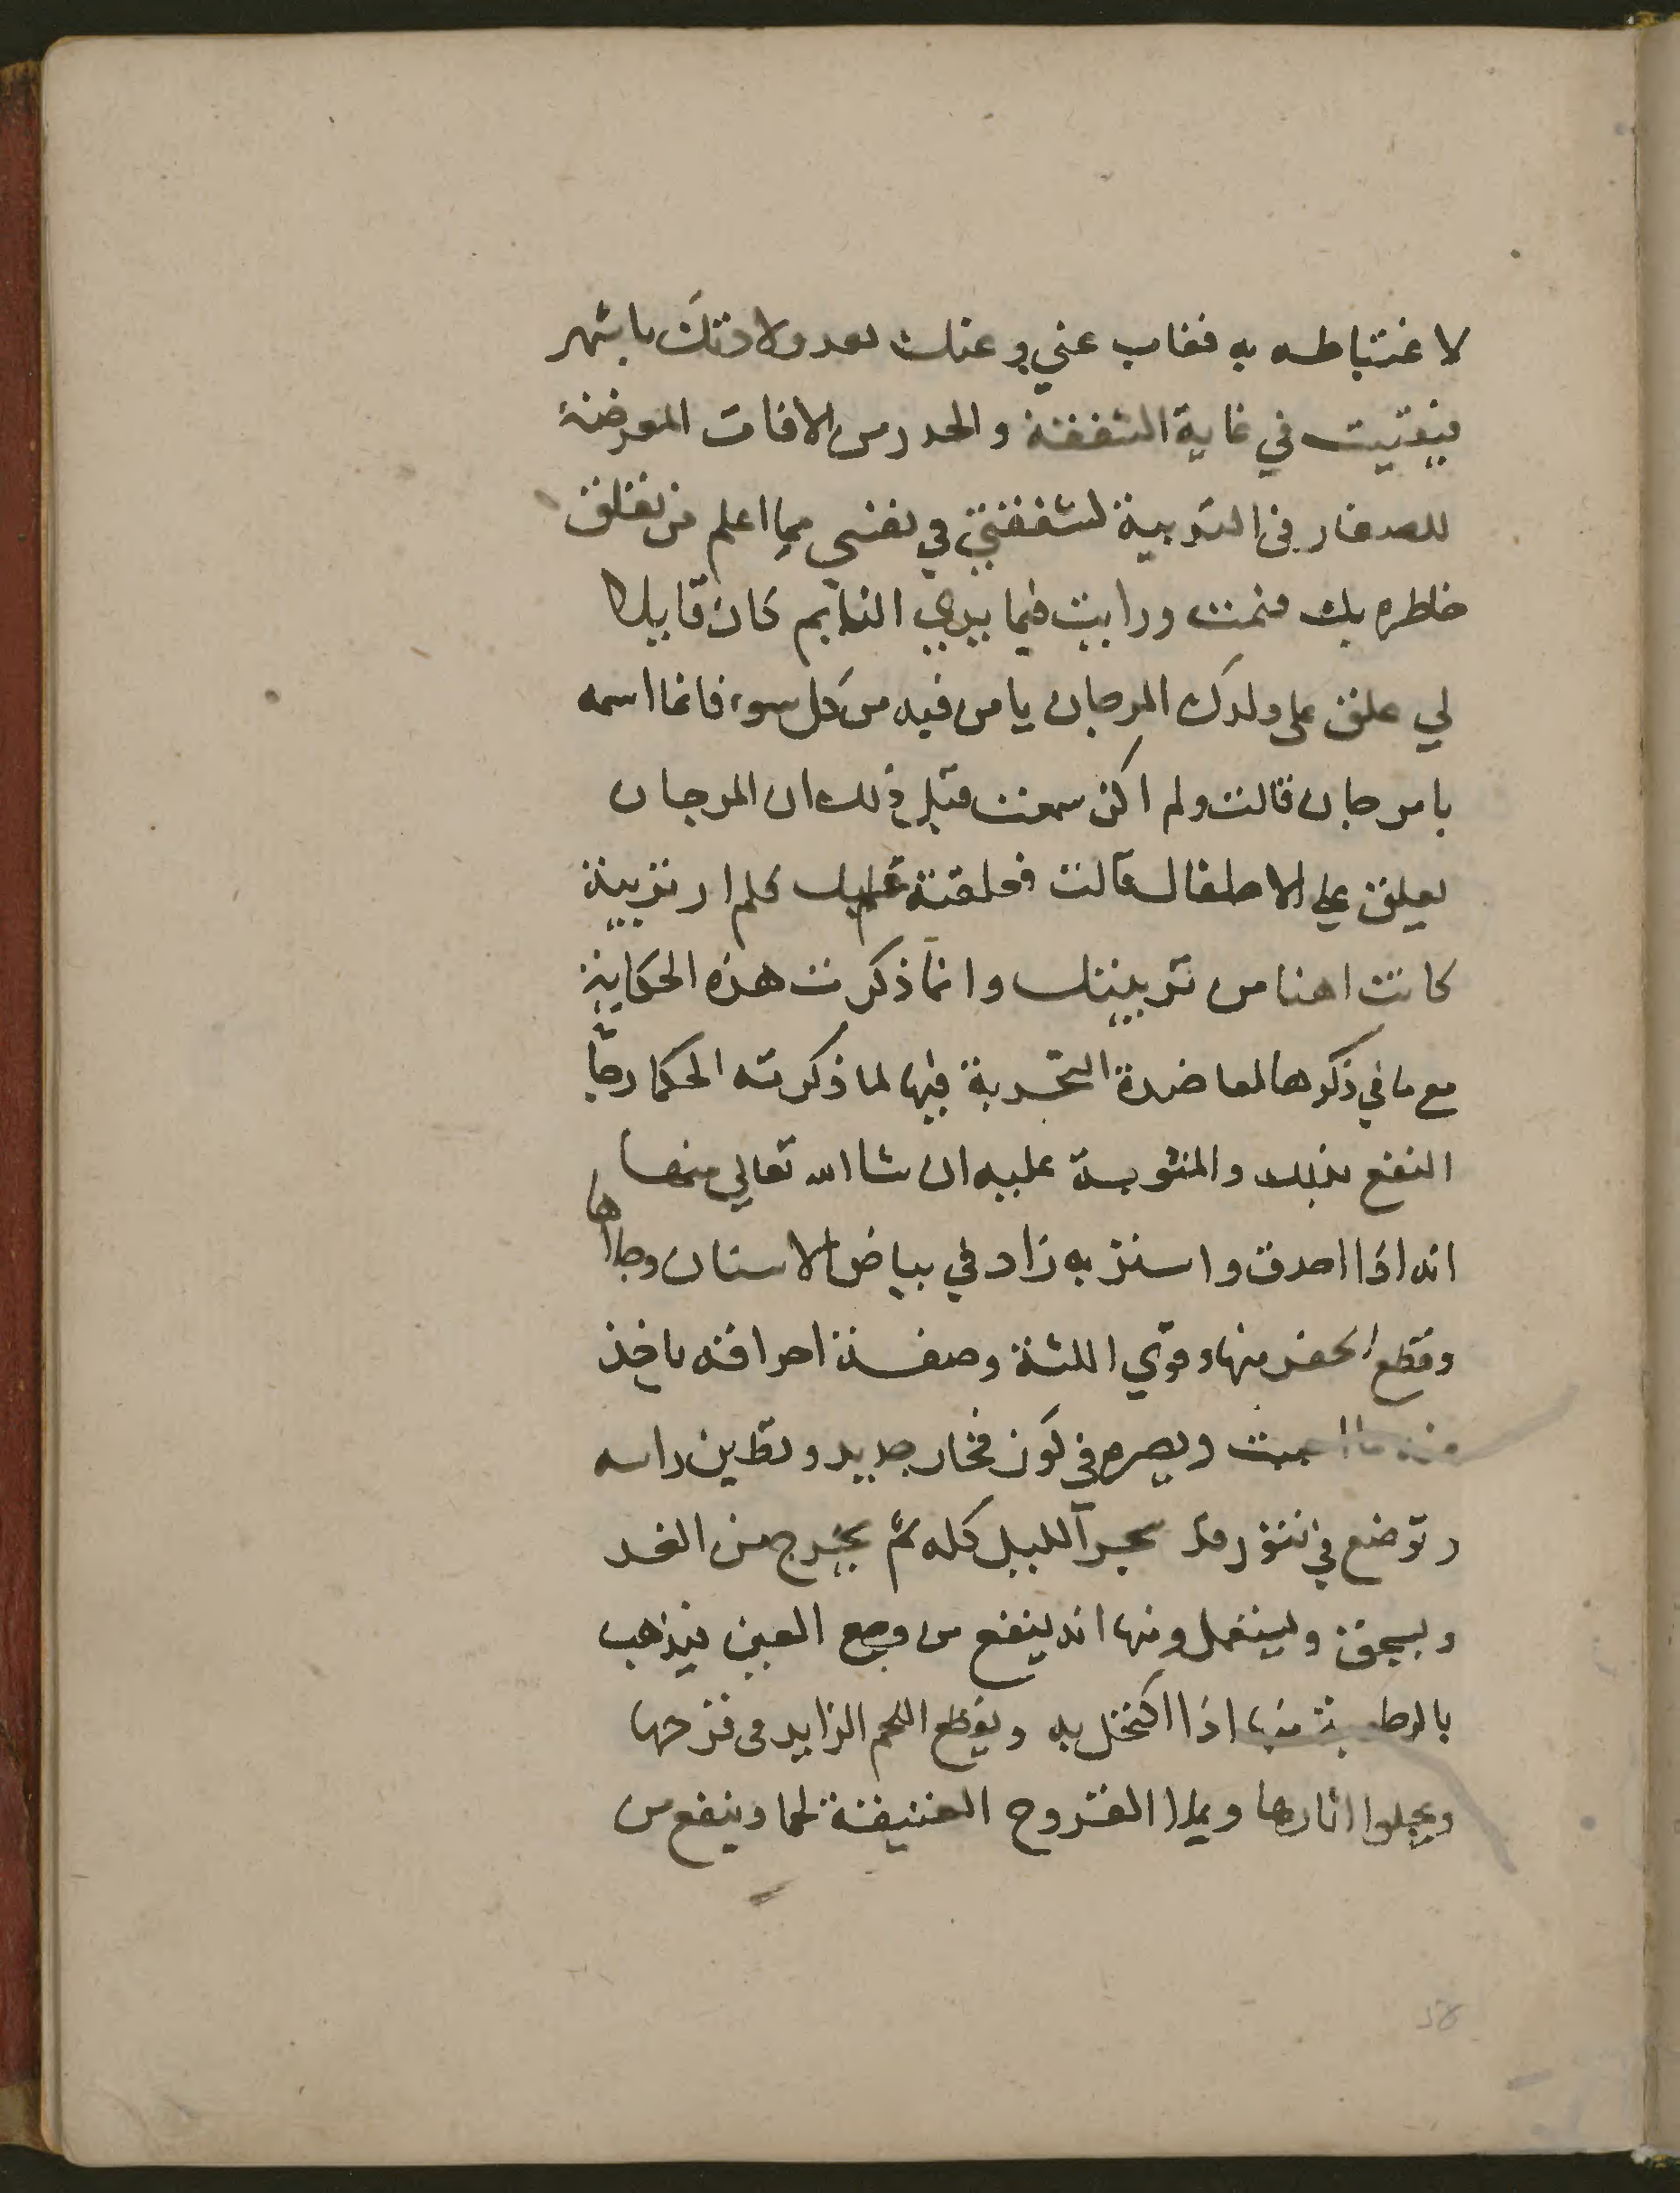 لاغتباطه به فغاب عني وعنك بعد ولادتك باشهر
فبقيت في غاية الشفقة والحدر من الافات المعرضة
للصغار في التربية لشفقتي في نفسي مما اعلم من تعلق
خاطره بك فنمت ورايت فيما يري النايم كان قايلا
لي علق على ولدك المرجان يامن فيه من كل سوء فانما اسمه
بامرجان قالت ولم اكن سمعت قبل ذلك ان المرجان
يعلق علي الاطفال قالت فعلقته عليك فلم ار تربية
كانت اهنا من تربيتك وانما ذكرت هذه الحكاية
مع ما في ذكرها لمعاضدة التجربة فيها لما ذكرته الحكما رجا
النفع بذلك والمثوبة عليه ان شا الله تعالي منها
انه اذا احرق واستنّ به زاد في بياض الاسنان وجلاها
وقطع الحفر منها وقوي اللثة وصفة احراقه ياخذ
منه ما احببت ويصره في كوز فخار جديد ويطين راسه
وتوضع في تنور قد سجر الليل كله ثم يخرج من الغد
ويسحق ويستعمل ومنها انه ينفع من وجع العين فيذهب
بالرطوبة منها اذا اكتحل به ويقطع اللحم الزايد في قرحها
ويجلوا اثارها ويملا القروح العتيقة لحما وينفع من